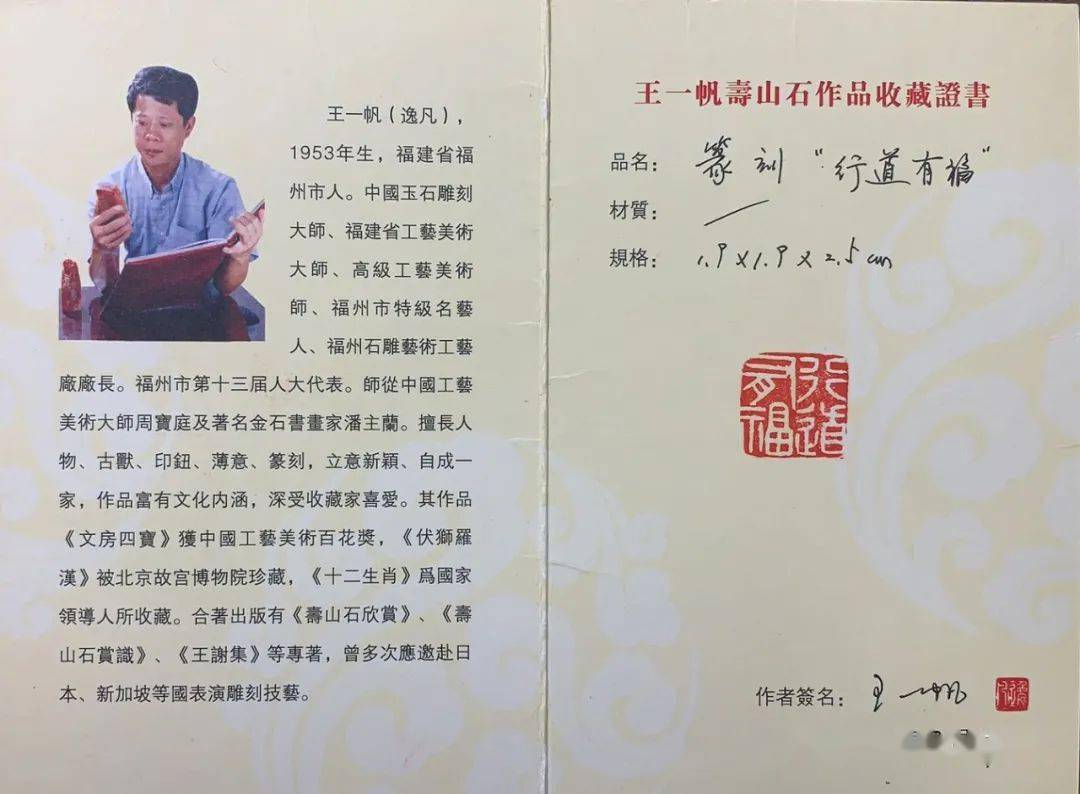 王一帆（逸凡），
1953年生，福建省福
州市人。中國玉石雕刻
大師、福建省工藝美術
大師、高級工藝美術
師、福州市特級名藝
人、福州石雕藝術工藝
廠廠長。福州市第十三届人大代表。師從中國工藝
美術大師周寶庭及著名金石書畫家潘主蘭。擅長人
物、古獸、印鈕、薄意、篆刻，立意新穎、自成一
家，作品富有文化内涵，深受收藏家喜愛。其作品
《文房四寶》獲中國工藝美術百花獎，《伏獅羅
漢》被北京故宫博物院珍藏，《十二生肖》爲國家
領導人所收藏。合著出版有《壽山石欣賞》、《壽
山石賞識》、《王謝集》等專著，曾多次應邀赴日
本、新加坡等國表演雕刻技藝。
王一帆壽山石作品收藏證書
品名：篆刻“行道有福”
材質：
規格：1.9×1.9×2.5cm
行道有福
作者簽名：王一帆